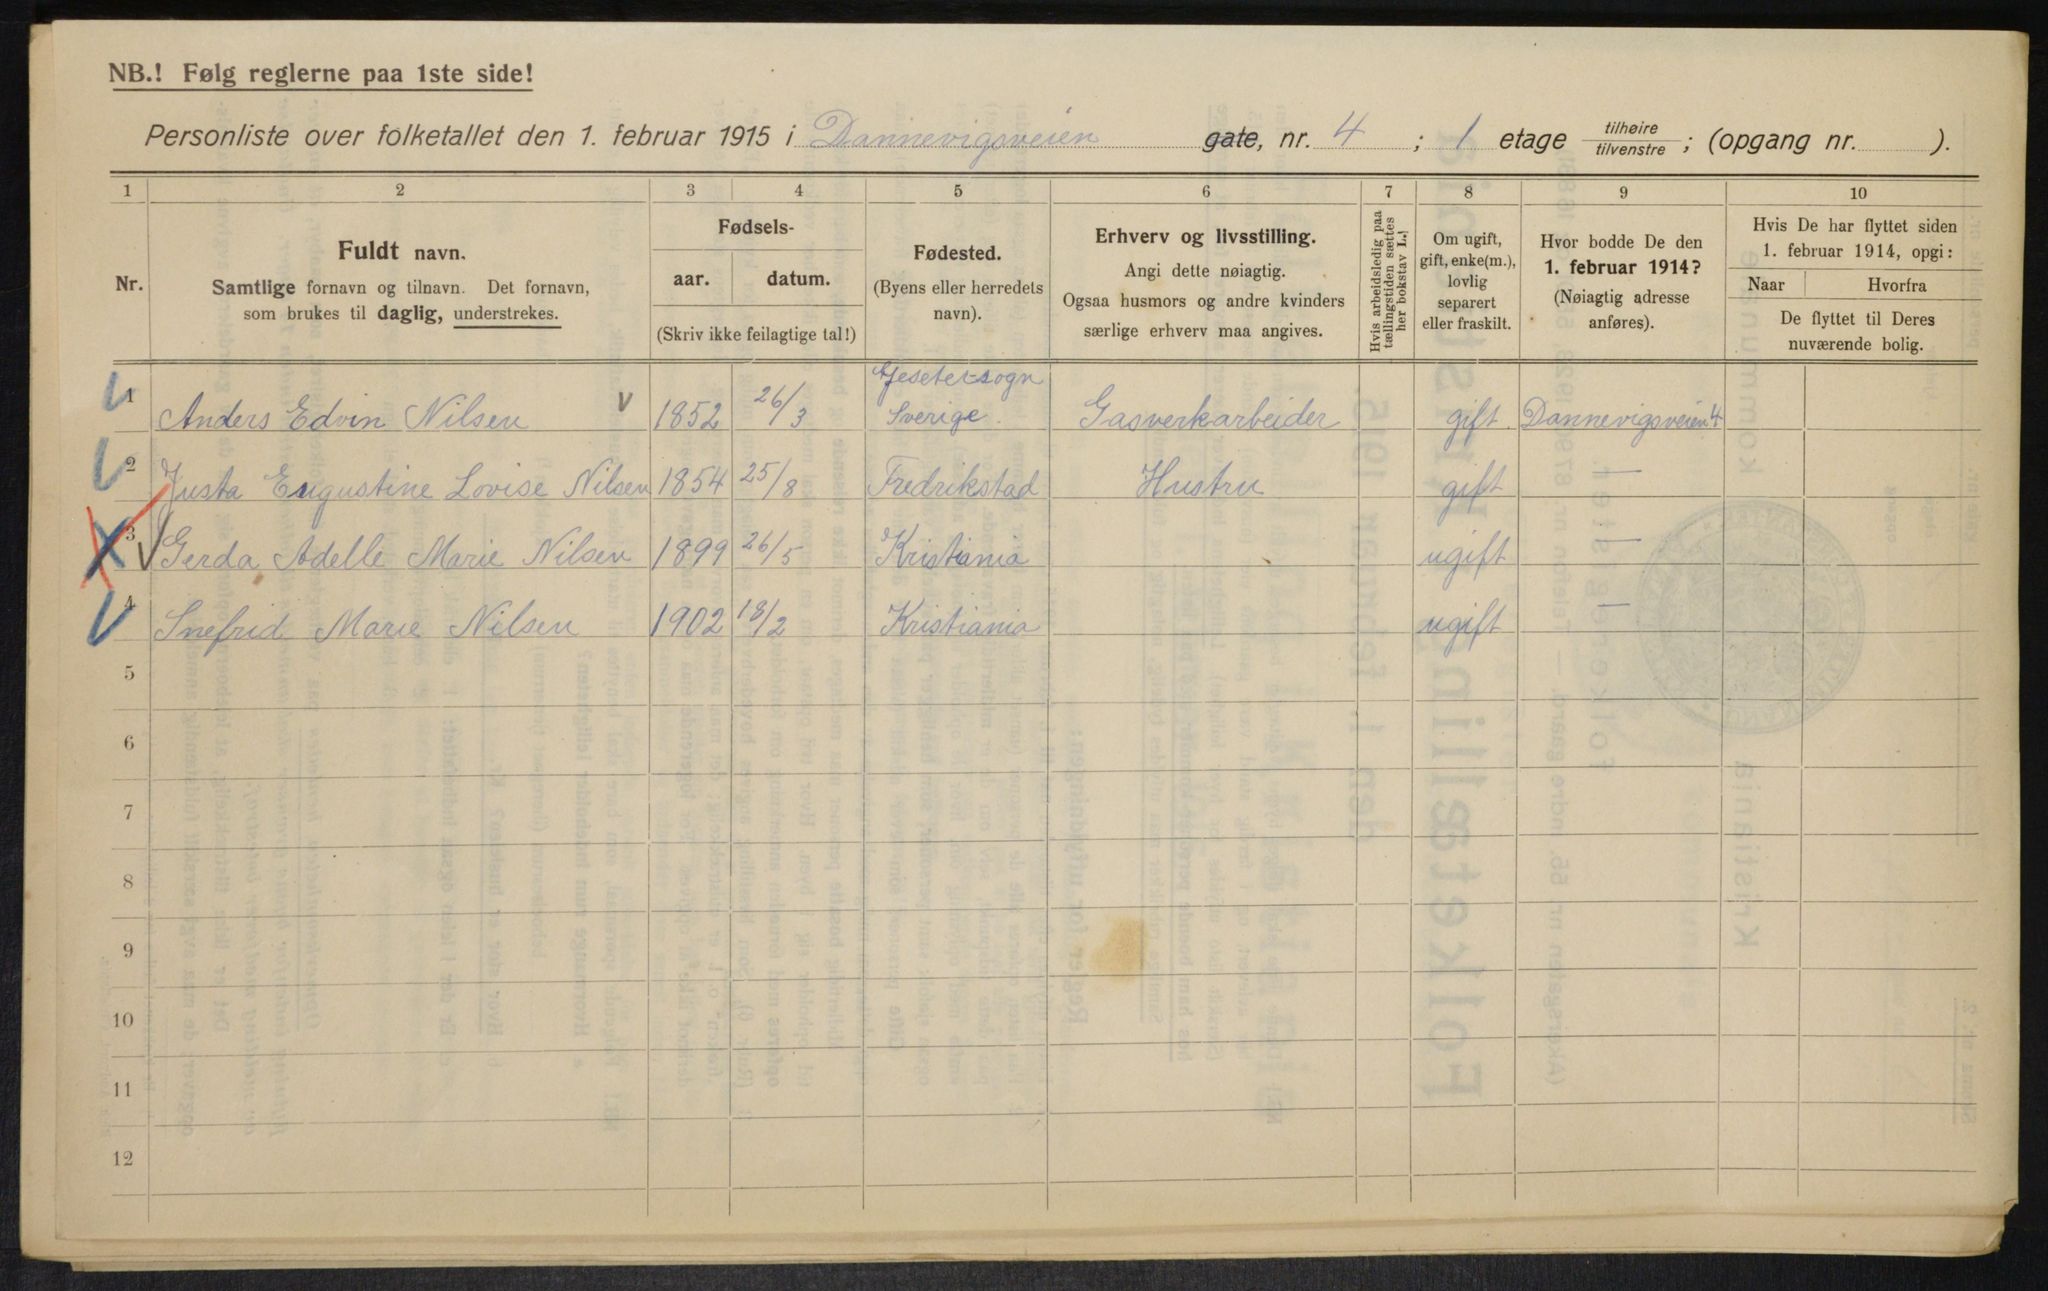 NB.! Følg reglerne paa 1ste side!
Personliste over folketallet den 1. februar 1915 i Dannevigsveien gate, nr. 4 ; 1 etage tilhøire tilvenstre ; (opgang nr. ).
1 2 3 4 5 6 7 8 9 10
Nr.
Fuldt navn.
Samtlige fornavn og tilnavn. Det fornavn,
som brukes til daglig, understrekes.
Fødsels-
aar. datum.
(Skriv ikke feilagtige tal!)
Fødested.
(Byens eller herredets
navn).
Erhverv og livsstilling.
Angi dette nøiagtig.
Ogsaa husmors og andre kvinders
særlige erhverv maa angives.
Hvis arbeidsledig paa
tællingstiden sættes
her bokstav L.!
Om ugift,
gift, enke(m.),
lovlig
separert
eller fraskilt.
Hvor bodde De den
1. februar 1914?
(Nøiagtig adresse
anføres).
Hvis De har flyttet siden
1. februar 1914, opgi:
Naar Hvorfra
De flyttet til Deres
nuværende bolig.
1 Anders Edvin Nilsen 1852 26/3 Gesetersogn Sverige Gasverkarbeider gift Dannevigsveien 4
2 Justa Eugustine Lovise Nilsen 1854 25/8 Fredrikstad Hustru gift —
3 Gerda Adelle Marie Nilsen 1899 26/5 Kristiania ugift —
4 Snefrid Marie Nilsen 1902 18/2 Kristiania ugift —
5
6
7
8
9
10
11
12